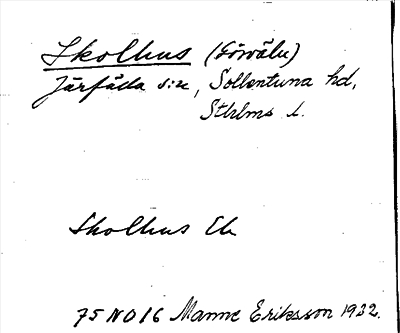 Skolhus (Görväln)
Järfälla s:n, Sollentuna hd,
Sthlms l.
Skolhus Ek
75 NO 16 Manne Eriksson 1932.